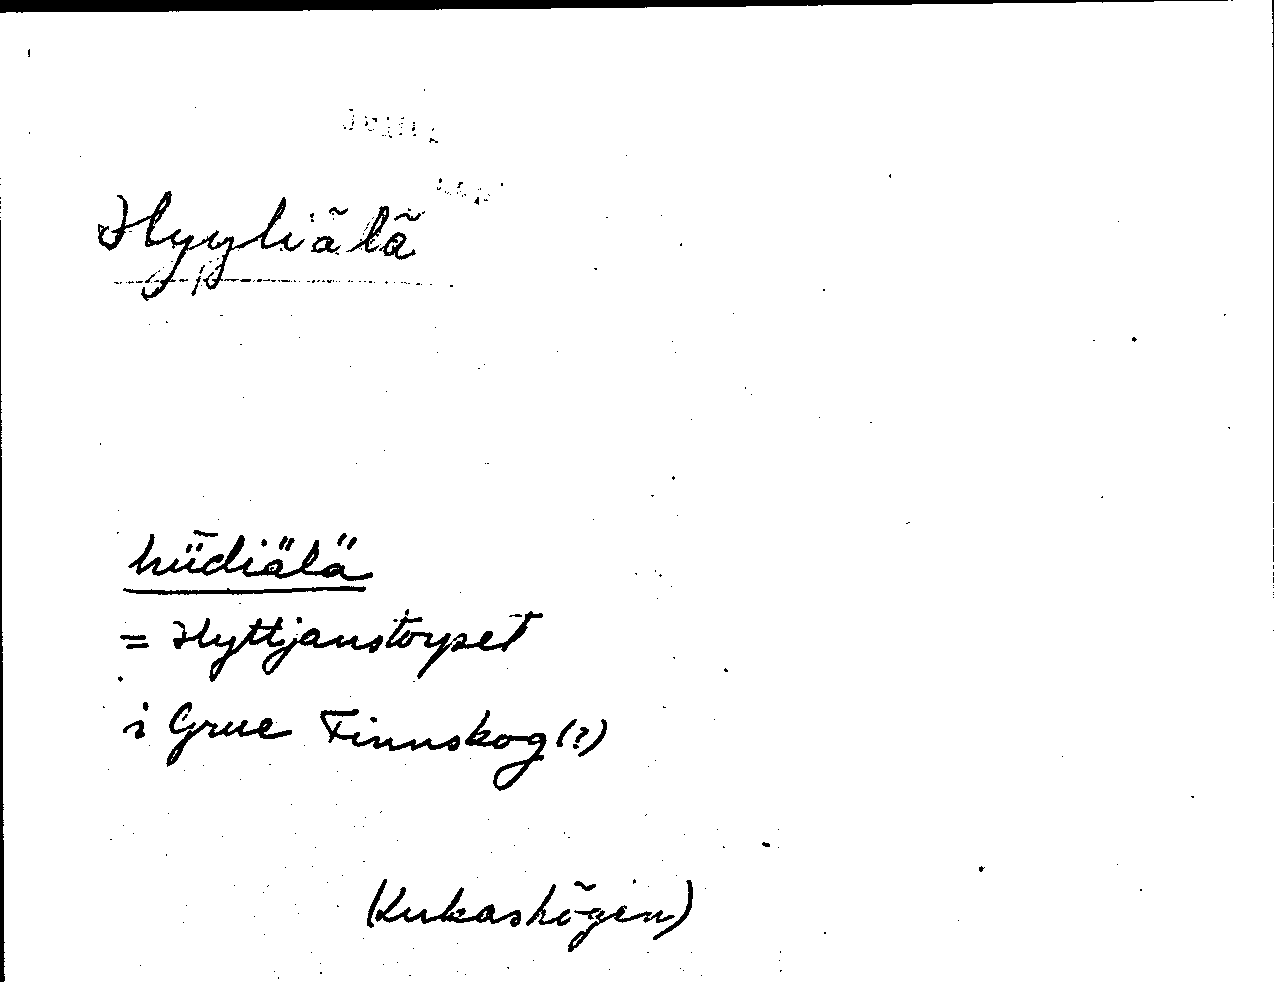 Hyyliälä
hüdiälä
= Hyttjanstorpet
i Grue Finnskog (?)
(Lukashögin)